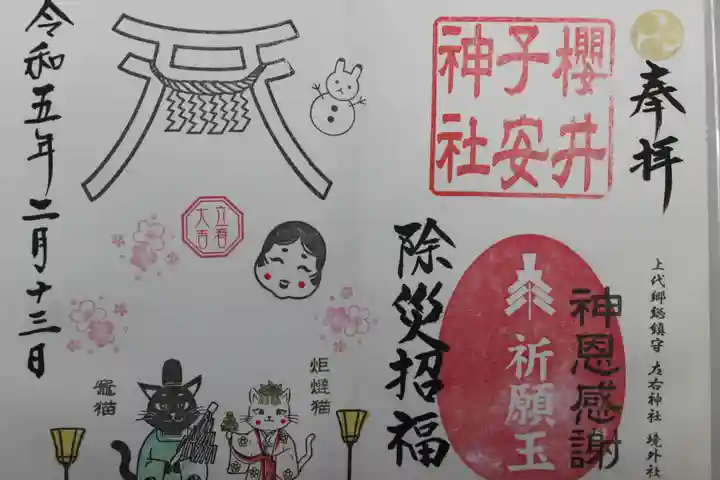 奉拝
櫻井
子安
神社
上代郷総鎮守 左右神社 境外社
神恩感謝
祈願玉
除災招福
立春
大吉
炬燵猫
竈猫
令和五年二月十三日